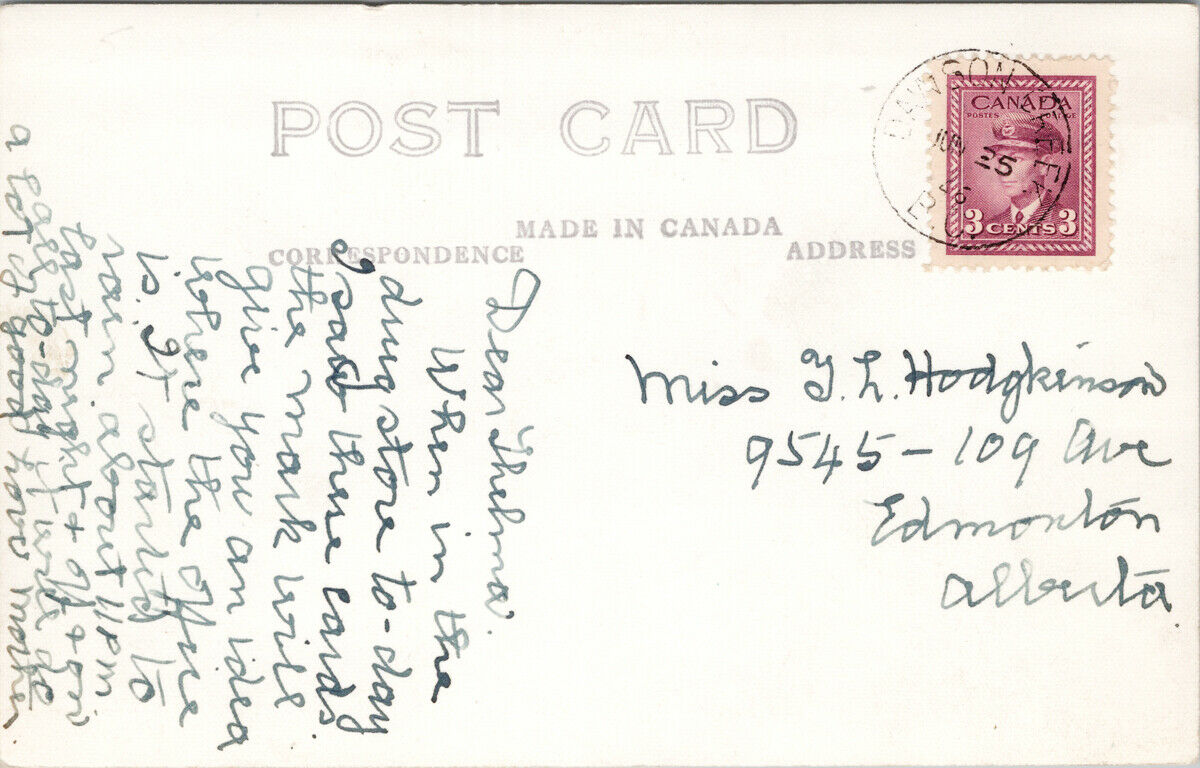 POST CARD
MADE IN CANADA
CORRESPONDENCE
ADDRESS
DAWSON CREEK
JUN 25
B.C.
CANADA
POSTES POSTAGE
3 CENTS 3
Dear Thelma.
When in the
drug store to-day
I saw these cards.
the mark will
give you an idea
where the office
is. It started to
rain about 11 pm
last night & off & on
again to-day it will do
a lot of good now mother.
Miss T. L. Hodgkinson
9545-109 Ave
Edmonton
Alberta